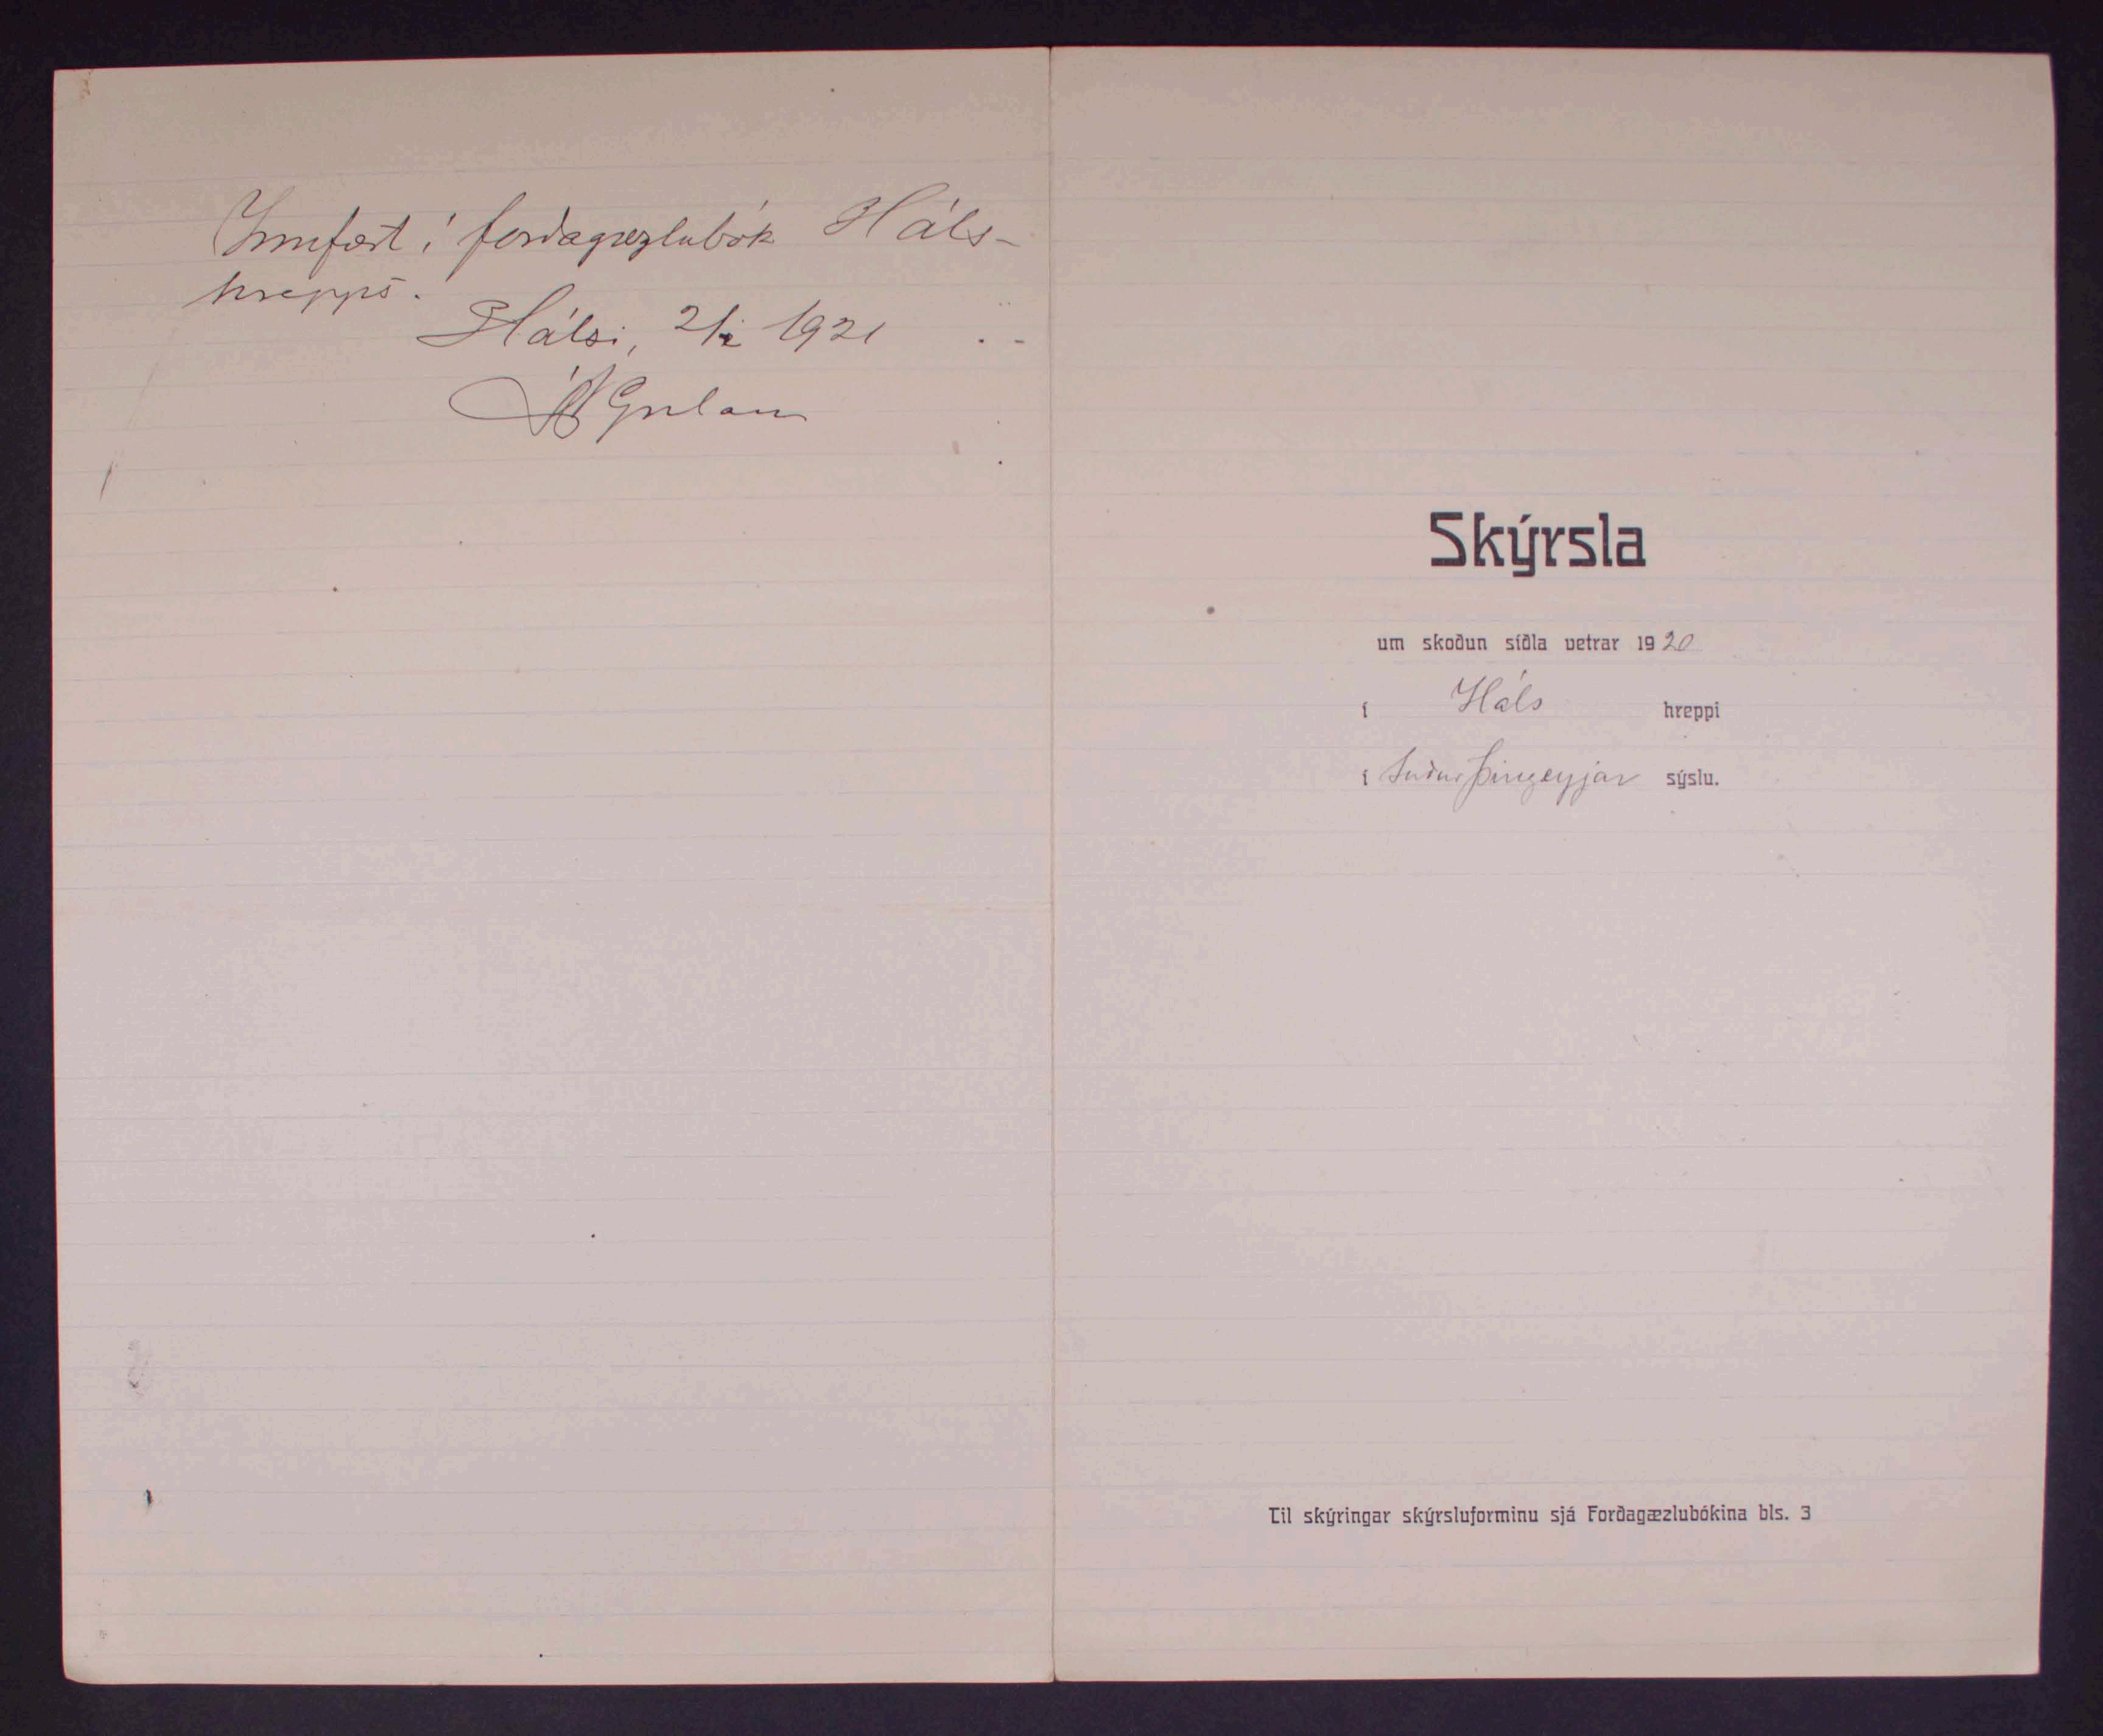 Innfært í forðagæzlubók Háls-
hrepps.
Hálsi, 2/2 1921
Skýrsla
um skoðun síðla vetrar 1920
í Háls hreppi
í Suður Þingeyjar sýslu.
Til skýringar skýrsluforminu sjá Forðagæzlubókina bls. 3